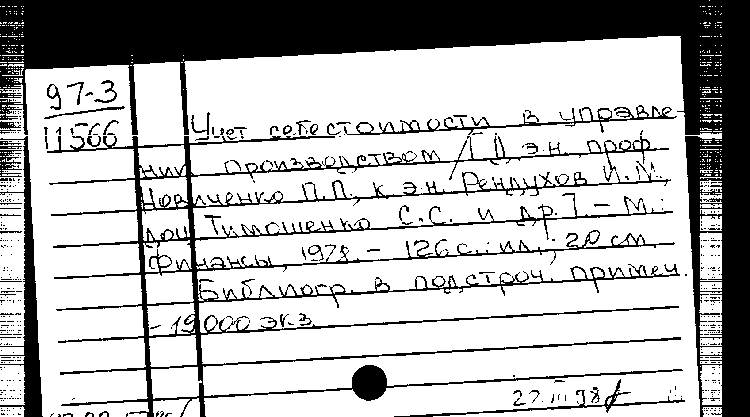 97-3
11566
Учет себестоимости в управле-
нии производством / [Д. э. н., проф.
Новиченко П.П., к. э. н. Рендухов И.М.,
доц. Тимошенко С.С. и др.]. – М.:
Финансы, 1978. – 126 с.: ил.; 20 см.
Библиогр. в подстроч. примеч.
– 19000 экз.
27 III 98